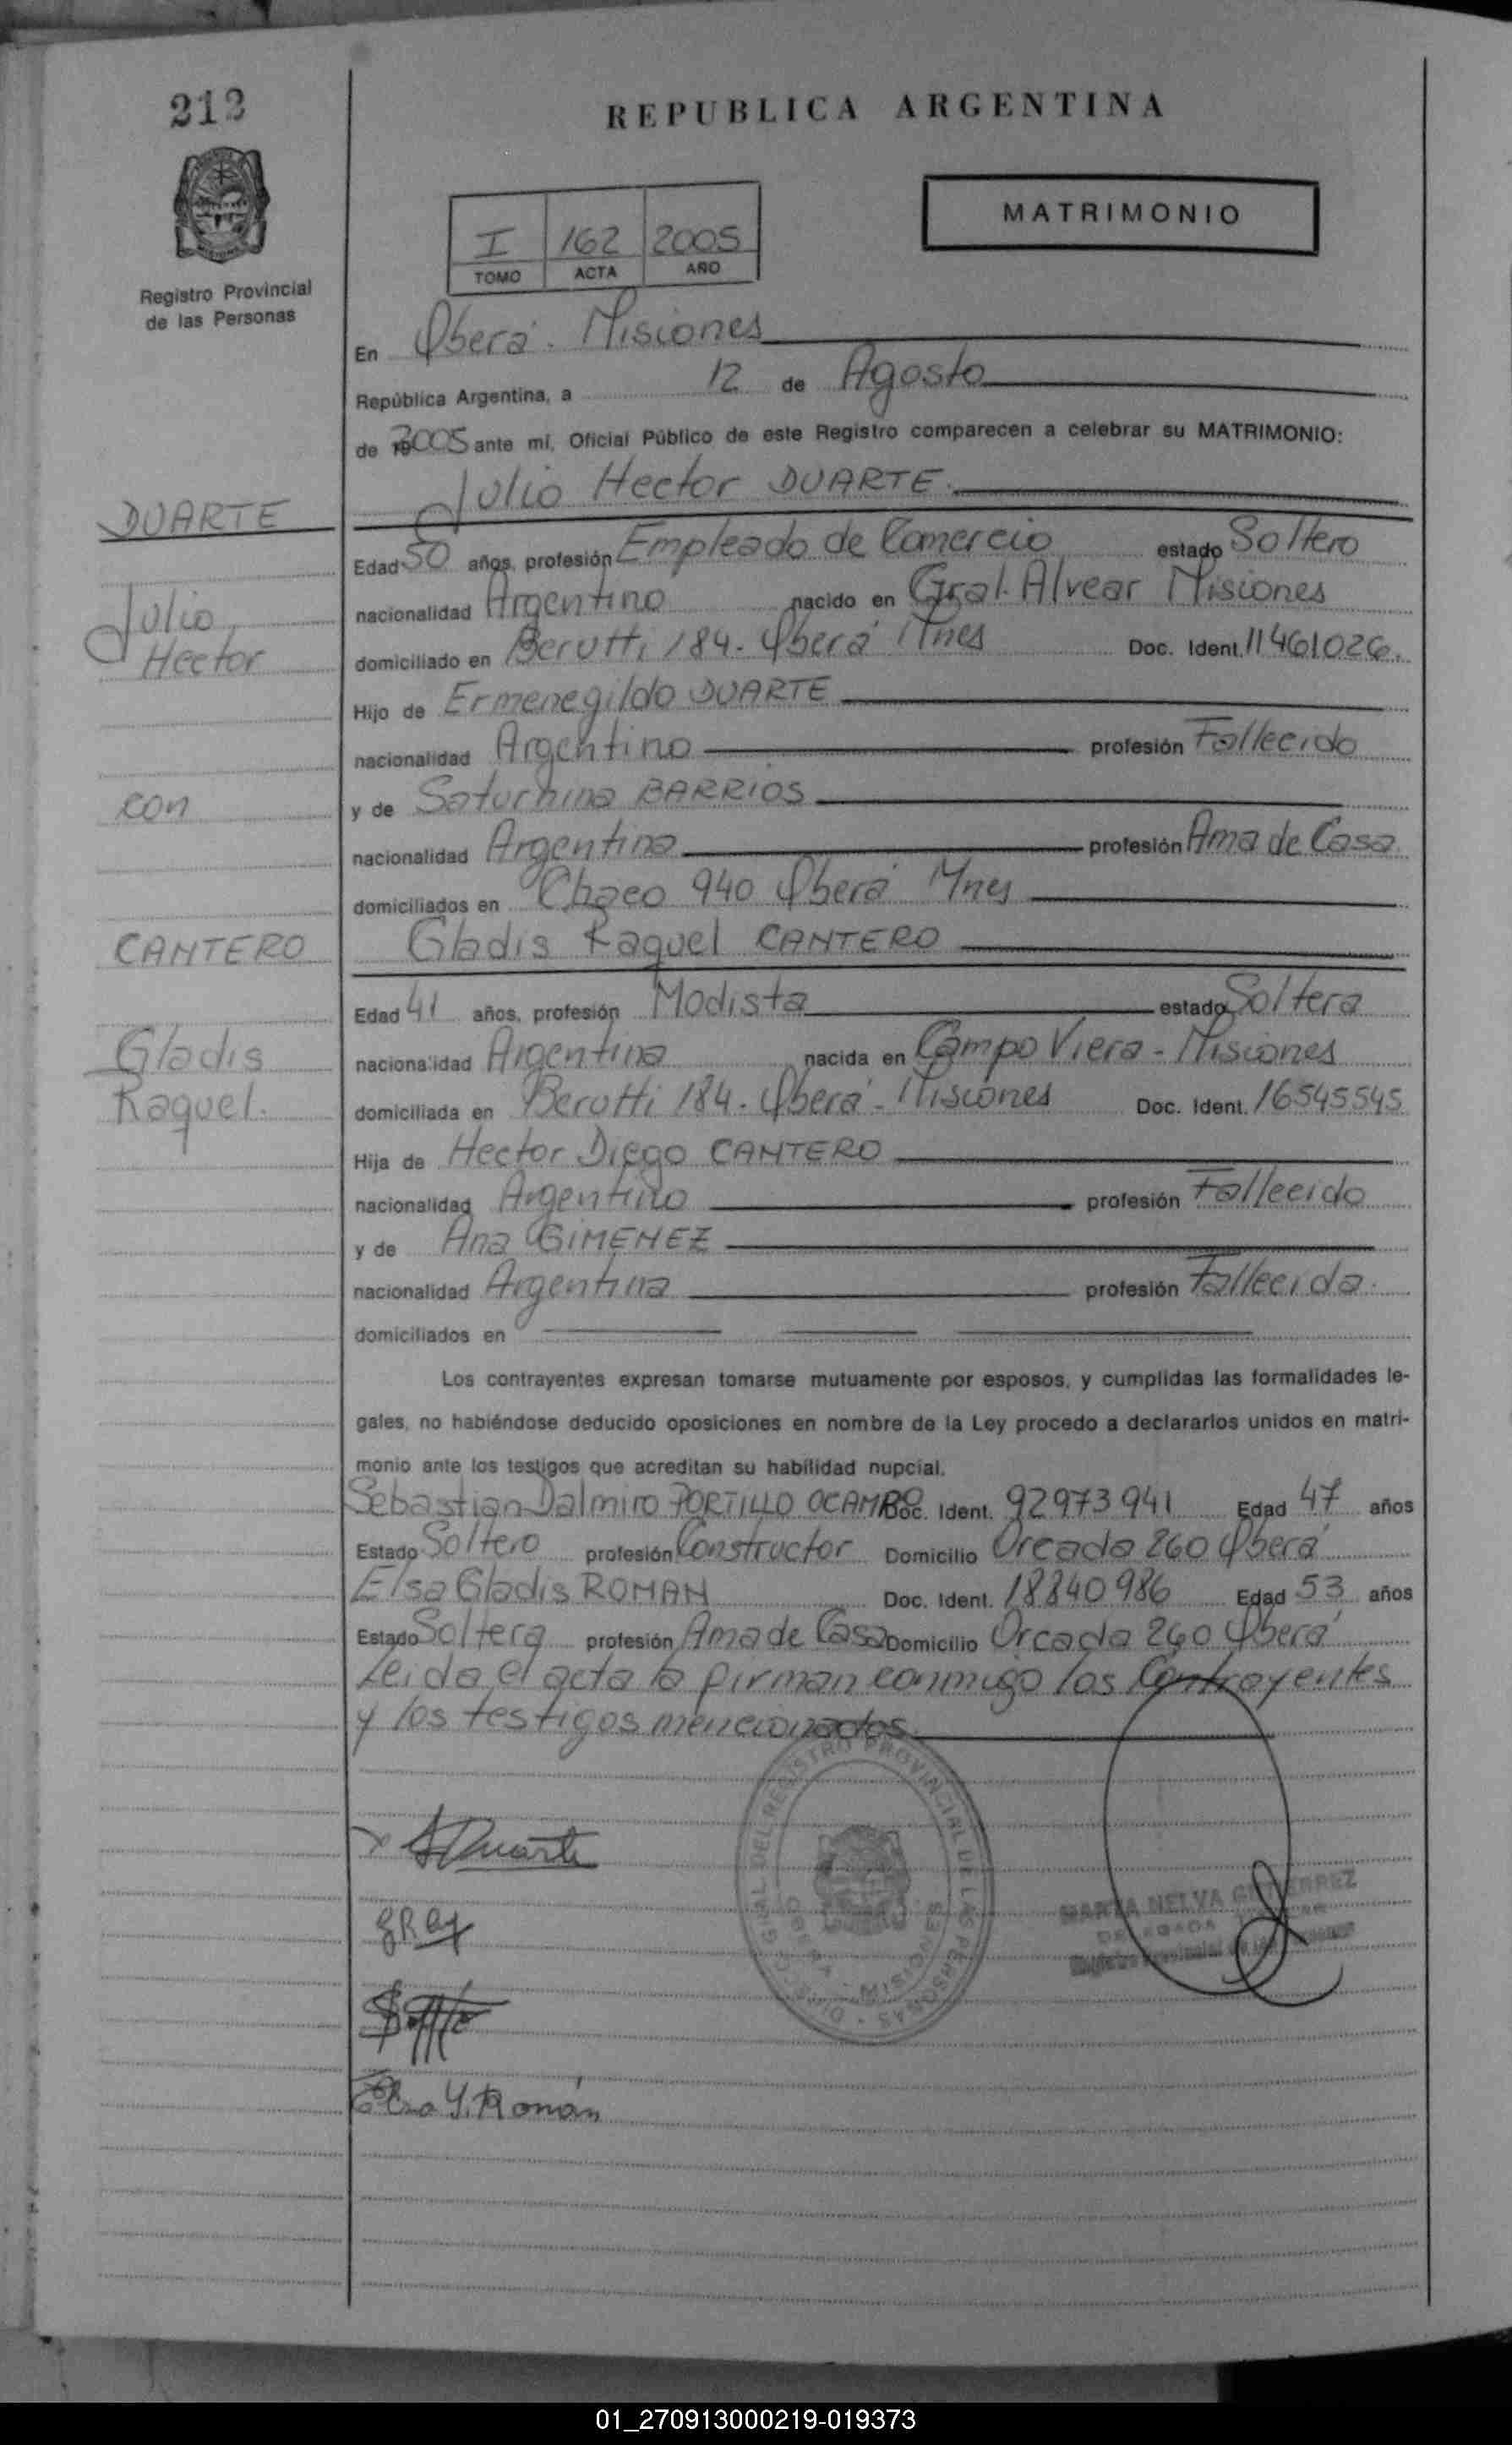 213
REPUBLICA ARGENTINA
MATRIMONIO
I 162 2005
TOMO ACTA AÑO
Registro Provincial
de las Personas
En Oberá. Misiones
República Argentina, a 12 de Agosto
de 2005 ante mí, Oficial Público de este Registro comparecen a celebrar su MATRIMONIO:
Julio Hector DUARTE.
DUARTE
Edad 50 años, profesión Empleado de Comercio estado Soltero
nacionalidad Argentino nacido en Gral. Alvear Misiones
Julio
Hector
domiciliado en Berutti 184. Oberá Mnes Doc. Ident. 11461026.
Hijo de Ermenegildo DUARTE
nacionalidad Argentino profesión Fallecido
con
y de Saturnina BARRIOS
nacionalidad Argentina profesión Ama de Casa
domiciliados en Chaco 940 Oberá Mnes
CANTERO
Gladis Raquel CANTERO
Edad 41 años, profesión Modista estado Soltera
Gladis
Raquel.
nacionalidad Argentina nacida en Campo Viera - Misiones
domiciliada en Berutti 184. Oberá - Misiones Doc. Ident. 16545545
Hija de Hector Diego CANTERO
nacionalidad Argentino profesión Fallecido
y de Ana GIMENEZ
nacionalidad Argentina profesión Fallecida.
domiciliados en
Los contrayentes expresan tomarse mutuamente por esposos, y cumplidas las formalidades le-
gales, no habiéndose deducido oposiciones en nombre de la Ley procedo a declararlos unidos en matri-
monio ante los testigos que acreditan su habilidad nupcial.
Sebastian Dalmiro PORTILLO OCAMPO Doc. Ident. 92973941 Edad 47 años
Estado Soltero profesión Constructor Domicilio Orcada 260 Oberá
Elsa Gladis ROMAN Doc. Ident. 18840986 Edad 53 años
Estado Soltera profesión Ama de Casa Domicilio Orcada 260 Oberá
Leida el acta la firman conmigo los Contrayentes
y los testigos mencionados
Duarte
MARTA NELVA GUTIERREZ
Registro Provincial de las Personas
REGISTRO PROVINCIAL DE LAS PERSONAS
MISIONES
Elsa G. Román
01_270913000219-019373